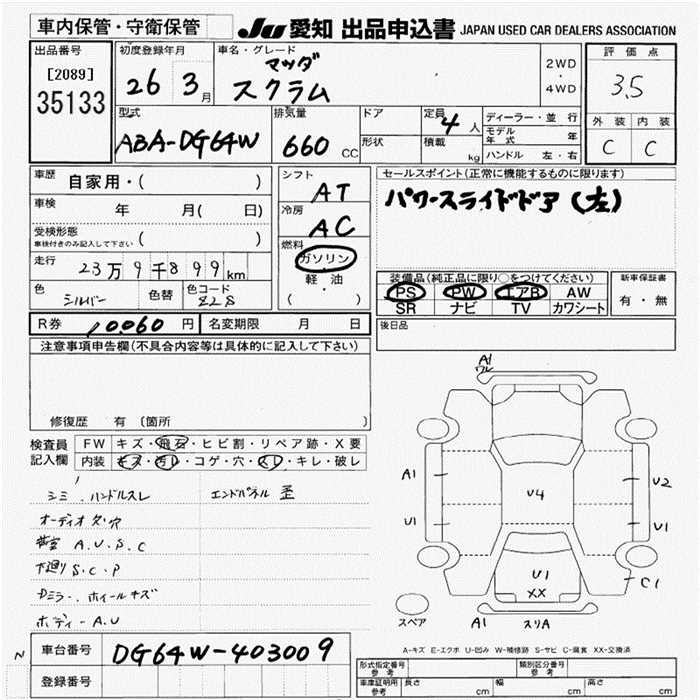 車内保管・守衛保管 JU 愛知 出品申込書 JAPAN USED CAR DEALERS ASSOCIATION
出品番号 初度登録年月 車名・グレード 評価点
[2089] マツダ 2WD
35133 26 3月 スクラム ・ 3.5
4WD
型式 排気量 ドア 定員 4人 ディーラー・並行 外装 内装
ABA-DG64W 660 CC 形状 積載 kg モデル年式 年 C C
ハンドル 左・右
車歴 自家用・( ) シフト AT セールスポイント(正常に機能するものに限ります)
車検 年 月( 日) 冷房 AC パワースライドドア(左)
受検形態 車検付きのみ記入して下さい ( ) 燃料 ガソリン
走行 23万9千899km 軽・油 装備品(純正品に限り○をつけてください) 新車保証書
色 シルバー 色替 色コード 828 ( ) PS PW エアB AW 有・無
SR ナビ TV カワシート
R券 10060円 名変期限 月 日 後日品
注意事項申告欄(不具合内容等は具体的に記入して下さい)
修復歴 有 〔箇所 〕
検査員 FW キズ・飛石・ヒビ割・リペア跡・X要
記入欄 内装 キズ・汚レ・コゲ・穴・スレ・キレ・破レ
シミ、ハンドルスレ エンドパネル 歪
オーディオ欠・穴
A.U.S.C
下廻りS.C.P
Dミラー、ホイールキズ
ボディーA.U
A1
ワレ
A1 U4 U2
U1 U1
U1
XX C1
スペア A1 スリA
A-キズ E-エクボ U-凹み W-補修跡 S-サビ C-腐食 XX-交換済
N 車台番号 DG64W-403009
登録番号
形式指定番号 参考 類別区分番号 参考
車庫証明用 参考 長さ cm 幅 cm 高さ cm